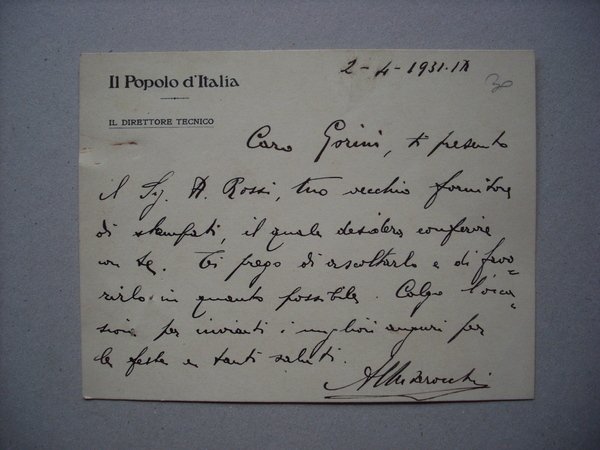 Il Popolo d'Italia
2-4-1931.IX
30
IL DIRETTORE TECNICO
Caro Gorini, ti presento
il Sig. A. Rossi, tuo vecchio fornitore
di stampati, il quale desidera conferire
con te. Ti prego di ascoltarlo e di favo=
rirlo in quanto possibile. Colgo l'occa=
sione per inviarti i migliori auguri per
le feste e tanti saluti.